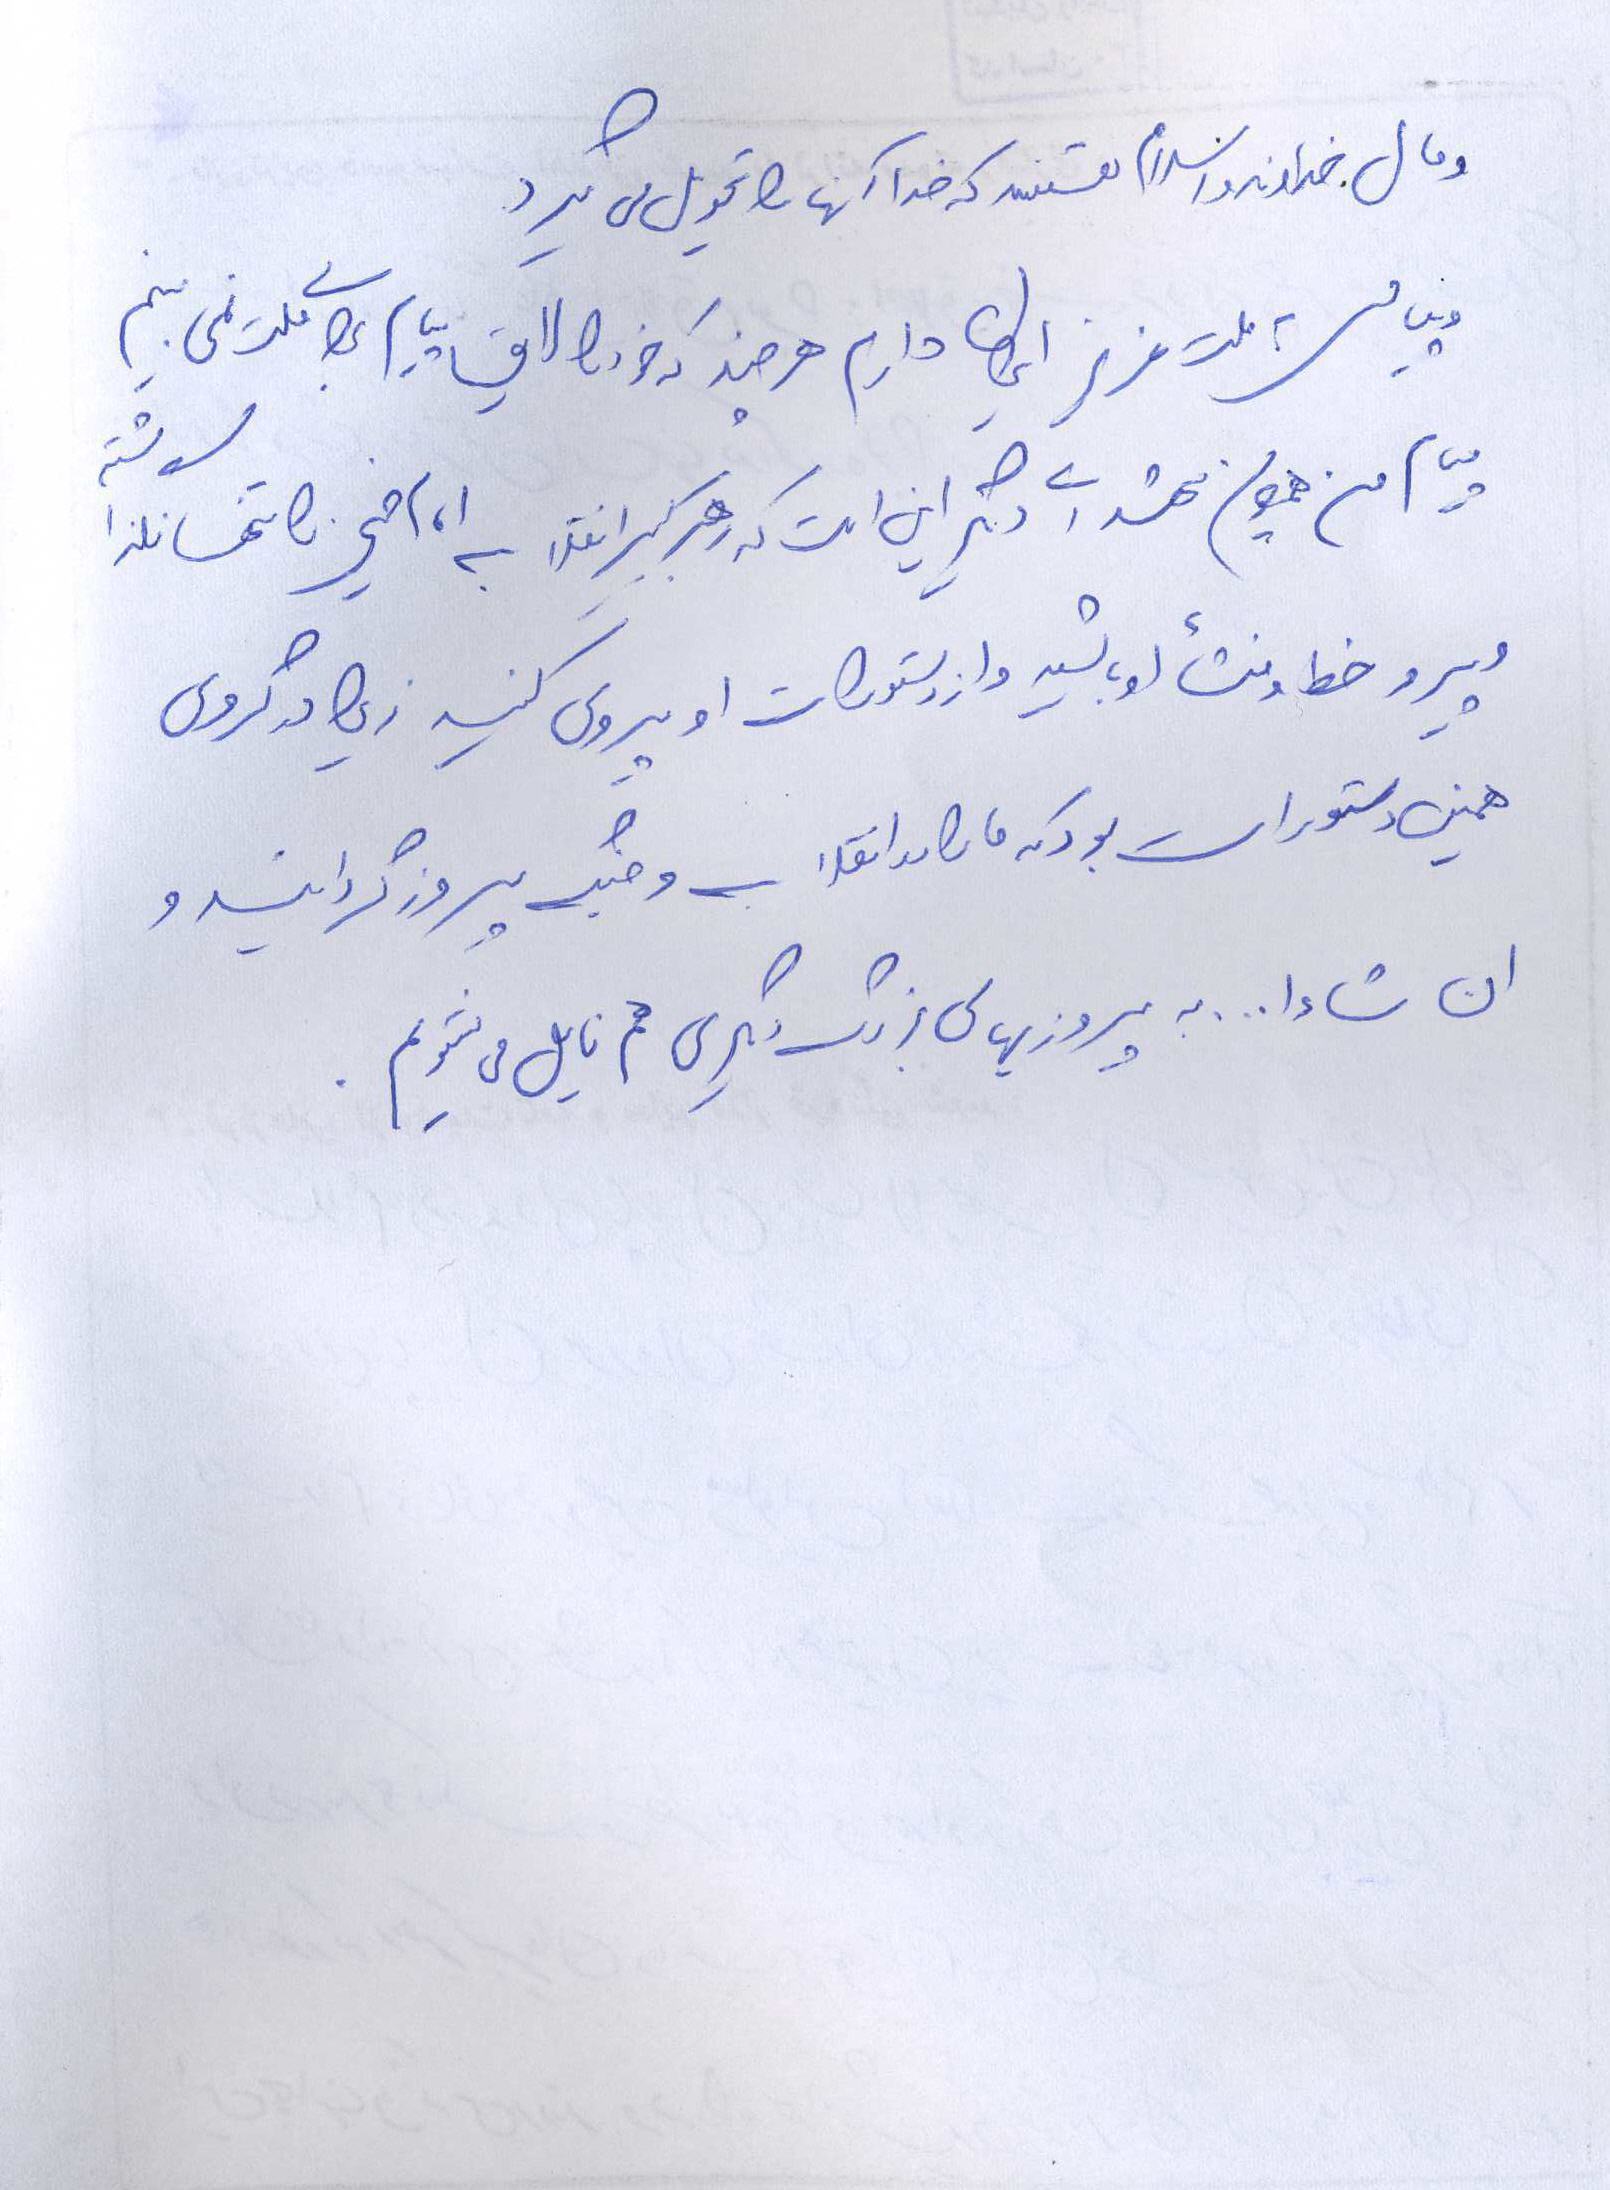 و مال خداوند و اسلام هستند که خدا آنها را تحویل می گیرد.
و پیامی به ملت عزیز ایران دارم هر چند که خود را لایق پیام برای ملت نمی بینم
پیام من همچون شهدای دیگر این است که رهبر کبیر انقلاب امام خمینی را تنها نگذاشته
و پیرو خط و منشأ او باشید و از دستورات او پیروی کنید زیرا در گروی
همین دستورات بود که ما را در انقلاب و جنگ پیروز گردانید و
ان شاء ا... به پیروزیهای بزرگ دیگری هم نایل می شویم.